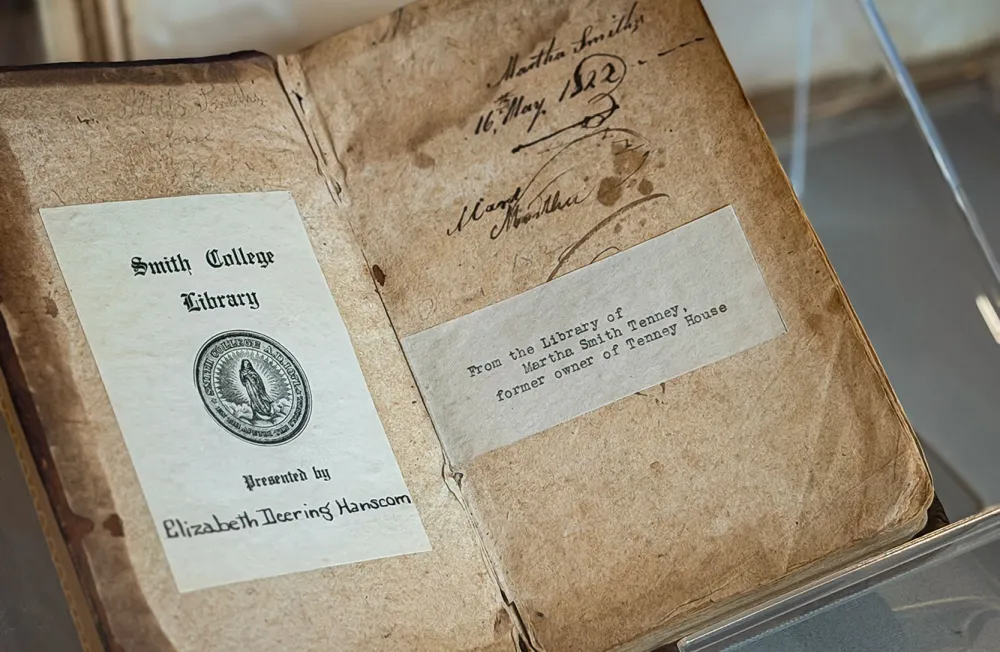 Smith College
Library
SMITH COLLEGE A.D.
Presented by
Elizabeth Deering Hanscom
Martha Smith,
16, May, 1822
From the Library of
Martha Smith Tenney,
former owner of Tenney House